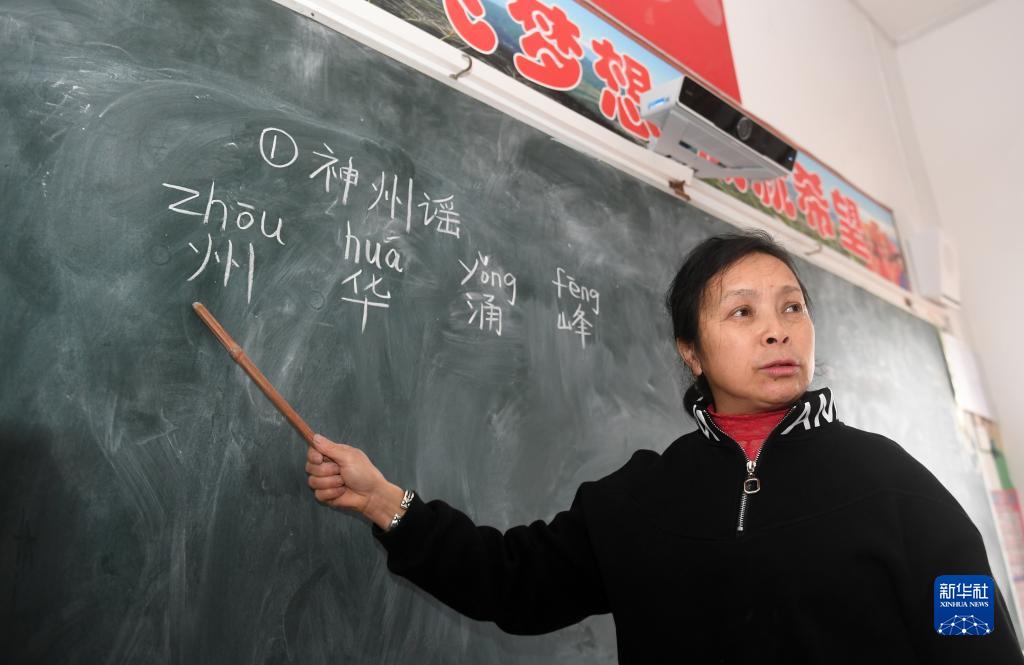 梦想
希望
① 神州谣
zhōu huā yǒng fēng
州 华 涌 峰
新华社
XINHUA NEWS